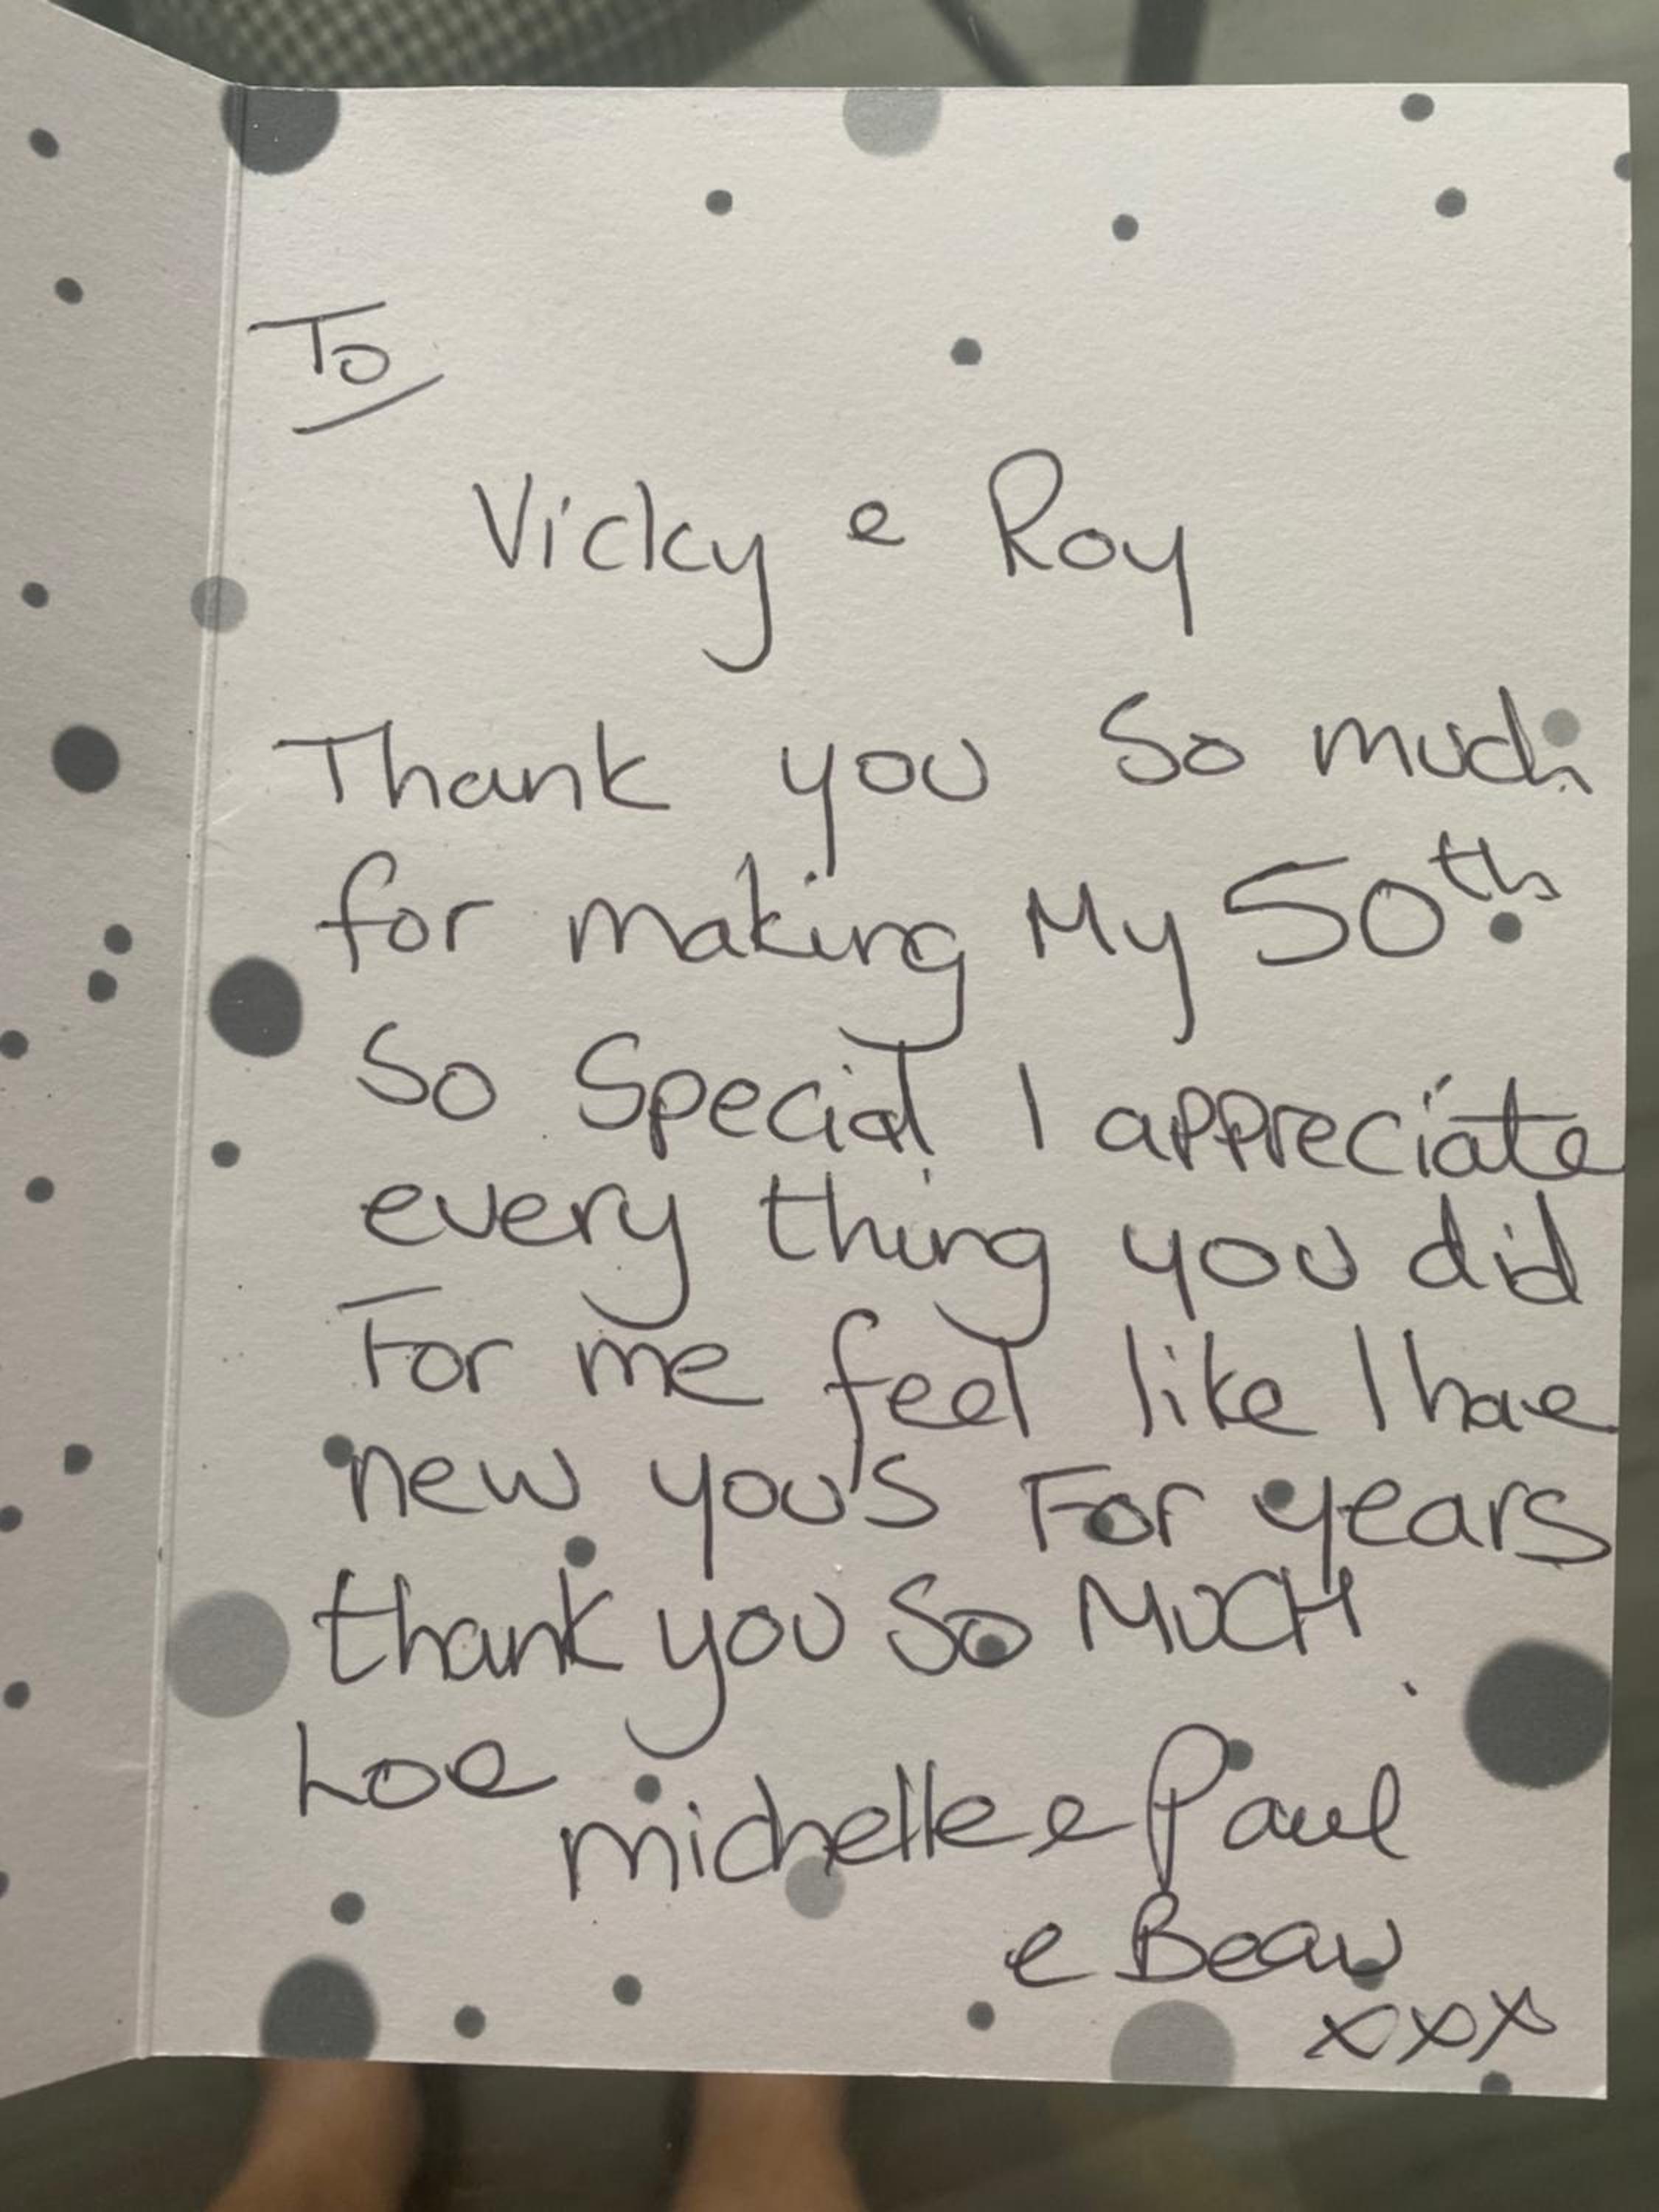 To
Vicky e Roy
Thank you so much
for making My 50th
So Special I appreciate
every thing you did
For me feel like I hae
new you's For years
thank you So MUCH
Loe
michelle e Paul
e Beau
xxx